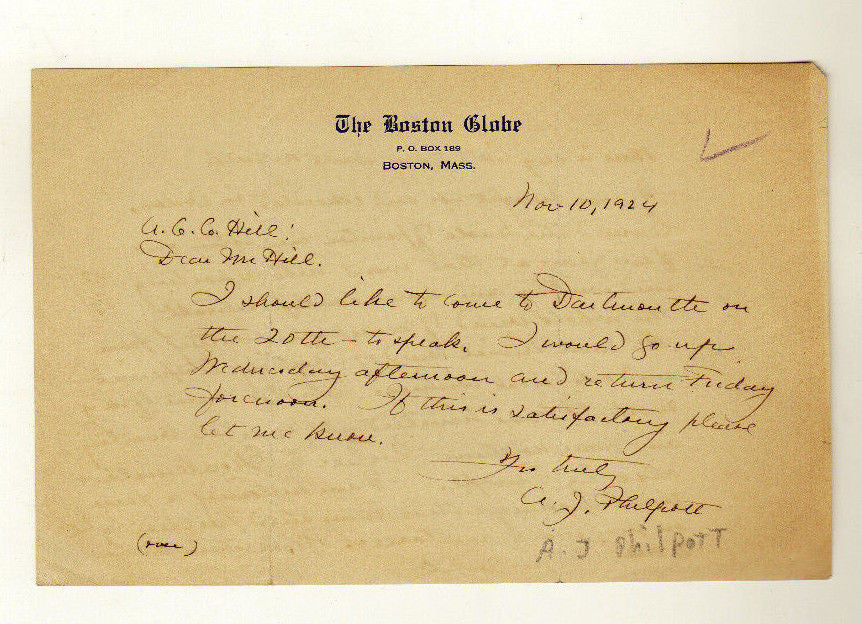 The Boston Globe
P. O. BOX 189
BOSTON, MASS.
Nov 10, 1924
A. C. C. Hill!
Dear Mr Hill.
I should like to come to Dartmouth on
the 20th – to speak. I would go up
Wednesday afternoon and return Friday
forenoon. If this is satisfactory please
let me know.
Yrs truly
A. J. Philpott
A. J Philpott
(over)